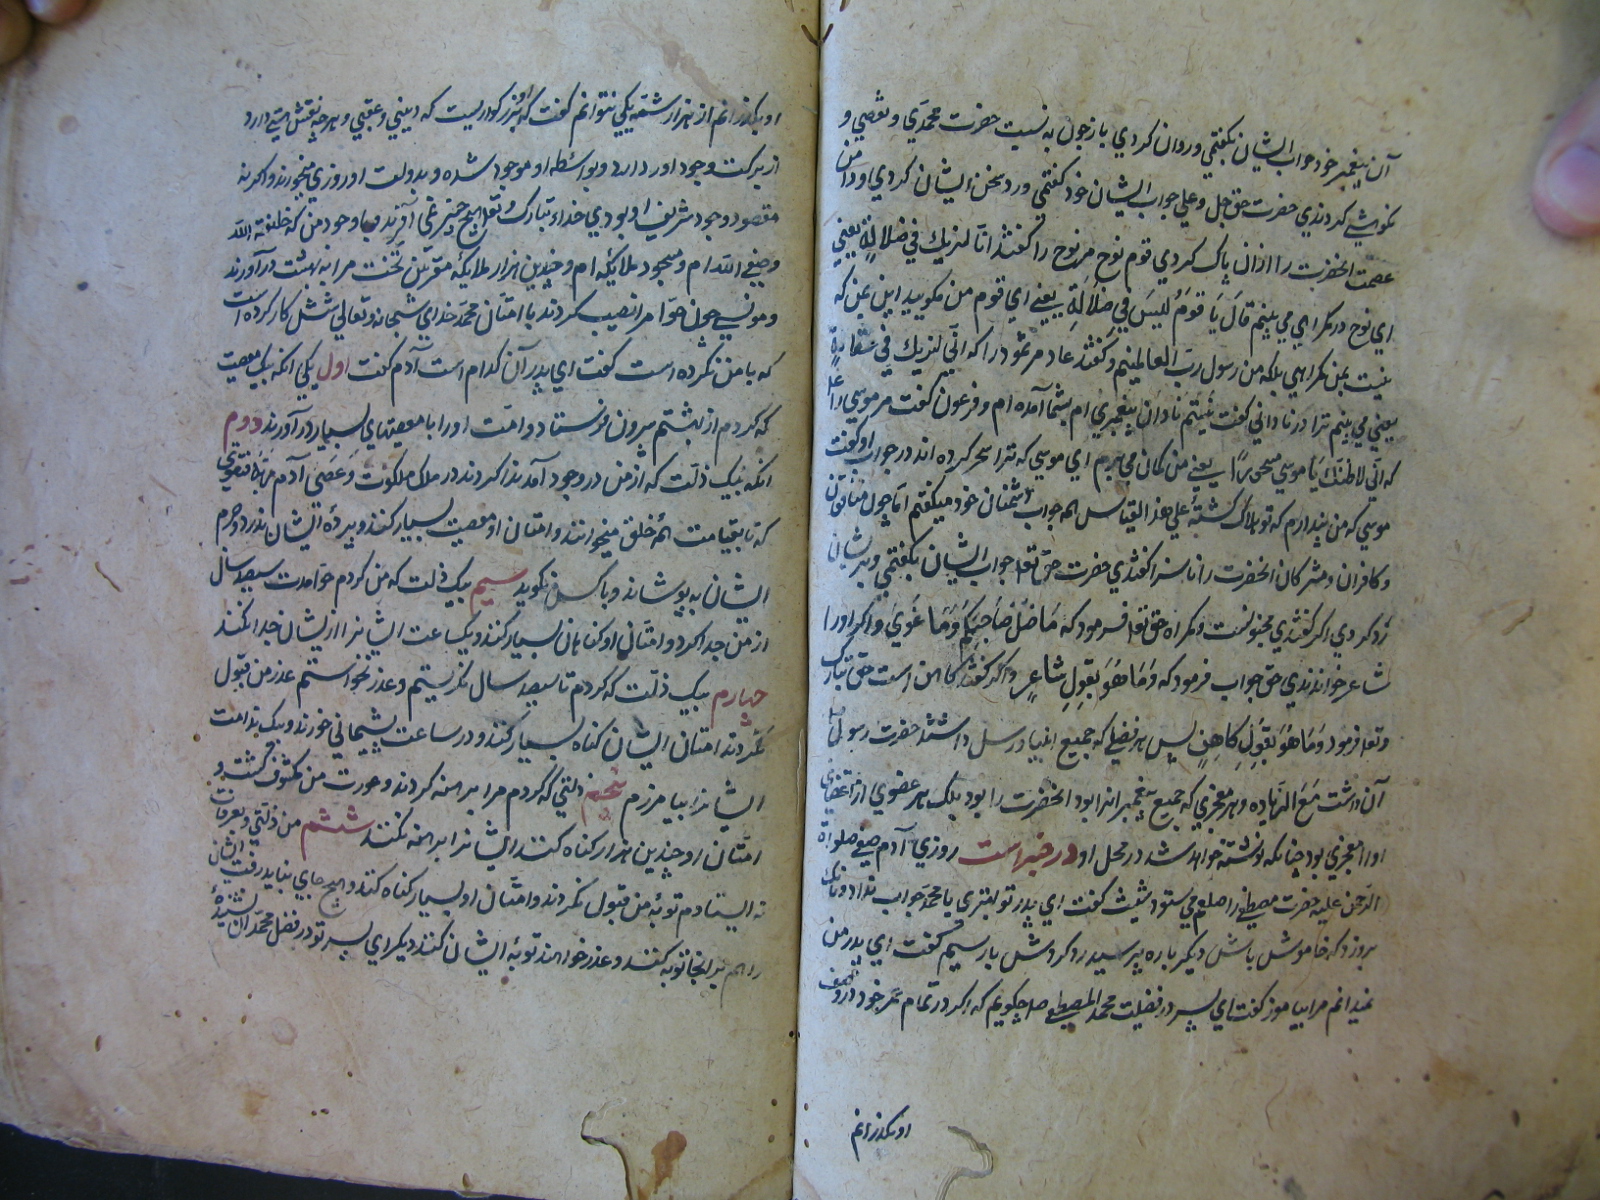 آن پیغمبر خود جواب ایشان بگفتی و روان کردی باز چون به نسبت حضرت محمدی و نقصی و
نکوهشی کردندی حضرت حق جل و علی جواب ایشان خود گفتی و رد سخن ایشان کردی و دامن
عصمت آنحضرت را از آن پاک کردی قوم نوح مر نوح را گفتند انا لنریک فی ضلالة یعنی
ای نوح در گمراهی می بینیم قال یا قوم لیس فی ضلالة یعنی ای قوم من مگویید این بمن که
نیست بمن گمراهی بلکه من رسول رب العالمینم و گفتند عاد مر هود را که انی لنریک فی سفاهة
یعنی می بینم ترا در نادانی گفت نیستم نادان پیغمبری ام بشما آمده ام و فرعون گفت مر موسی را
که انی لاظنک یا موسی مسحورا یعنی من گمان می برم ای موسی که ترا سحر کرده اند در جواب او گفت
موسی که من پندارم که تو هلاک گشتهٔ علی هذا القیاس همه جواب دشمنان خود میگفتم اما چون منافقان
و کافران و مشرکان آنحضرت را ناسزا گفتندی حضرت حق تعا جواب ایشان بگفتی و برایشان
رد کردی اگر گفتندی مجنونست و گمراه حق تعا فرمود که ما ضل صاحبکم و ما غوی و اگر او را
شاعر خواندندی حق جواب فرمود که و ما هو بقول شاعر و اگر گفتند کاهن است حق تبارک
و تعا فرمود و ما هو بقول کاهن پس هر فضلی که جمیع انبیا و رسل داشتند حضرت رسول
آن داشت مع الزیاده و هر معجزی که جمیع پیغمبرانرا بود آنحضرت را بود بلک هر عضوی از اعضای
او را معجزی بود چنانکه نوشته خواهد شد در محل او در خبر است روزی آدم صفی صلوات
الرحمن علیه حضرت مصطفی را صلعم می ستود شیث گفت ای پدر تو بهتری یا محمد جواب نداد و بانک
بروزد که خاموش باش دیگر باره پرسید رد کردش بار سیم گفت ای پدر من
نمیدانم مرا بیاموز گفت ای پسر در فضیلت محمد المصطفی صلعم چگویم که اگر در تمام عمر خود در وصف
او بگذرانم
او بگذرانم از هزار شمه یکی نتوانم گفت که او بزرگواریست که دنیی و عقبی و هر چه نقش هستی دارد
از برکت وجود او ردارد و بواسطه او موجود شده و بدولت او روزی میخورند و اگر نه
مقصود وجود شریف او بودی خداء تبارک و تعا هیچ چیز نمی آفرید و با وجود من که خلیفة الله
و صفی الله ام و مسجود ملایکه ام و چندین هزار ملایکه مقربین تخت مرا به بهشت در آورند
و مونسی چون حوا مرا نصیب کردند با امتان محمد خدای سبحانه و تعالی شش کار کرده است
که با من نکرده است گفت ای پدر آن کدام است آدم گفت اول یکی آنکه بیک معصیت
که کردم از بهشتم بیرون فرستاد و امت او را با معصیتهای بسیار در آورند دوم
آنکه بیک ذلت که از من در وجود آمد ندا کردند در ملک ملکوت و عصی آدم ربه فغوی
که تا بقیامت همهٔ خلق میخوانند و امتان او معصیت بسیار کنند و پردهٔ ایشان ندرد و جرم
ایشان به پوشاند و با کس نگوید سیم بیک ذلت که من کردم حوا مدت سیصد سال
از من جدا کرد و امتان او گناهان بسیار کنند و یکساعت ایشانرا از ایشان جدا نکند
چهارم بیک ذلت که کردم تا سیصد سال بگریستم و عذر خواستم عذر من قبول
نکردند امتان ایشان گناه بسیار کنند و در ساعت پشیمانی خورند و یک ندامت
ایشانرا بیامرزم پنجم ذلتی که کردم مرا برهنه کردند و عورت من مکشوف گشت و
امتان او چندین هزار گناه کنند ایشانرا برهنه نکنند ششم من ذلتی و بعرفات
نه ایستادم توبهٔ من قبول نکردند و امتان او بسیار گناه کنند و هیچ جای نباید رفت ایشان
را هم بر آنجا توبه کنند و عذر خواهند توبهٔ ایشان کنند دیگر ای پسر تو در فضل محمد آن نشنیدهٔ